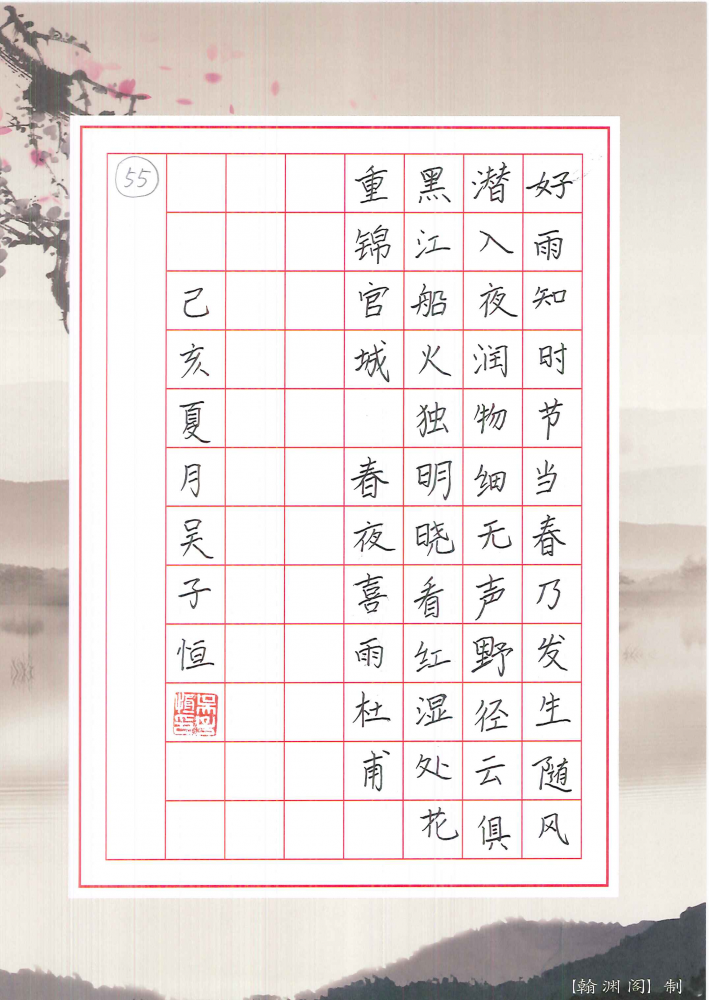 好雨知时节当春乃发生随风
潜入夜润物细无声野径云俱
黑江船火独明晓看红湿处花
重锦官城 春夜喜雨杜甫
己亥夏月吴子恒
55
【翰渊阁】制